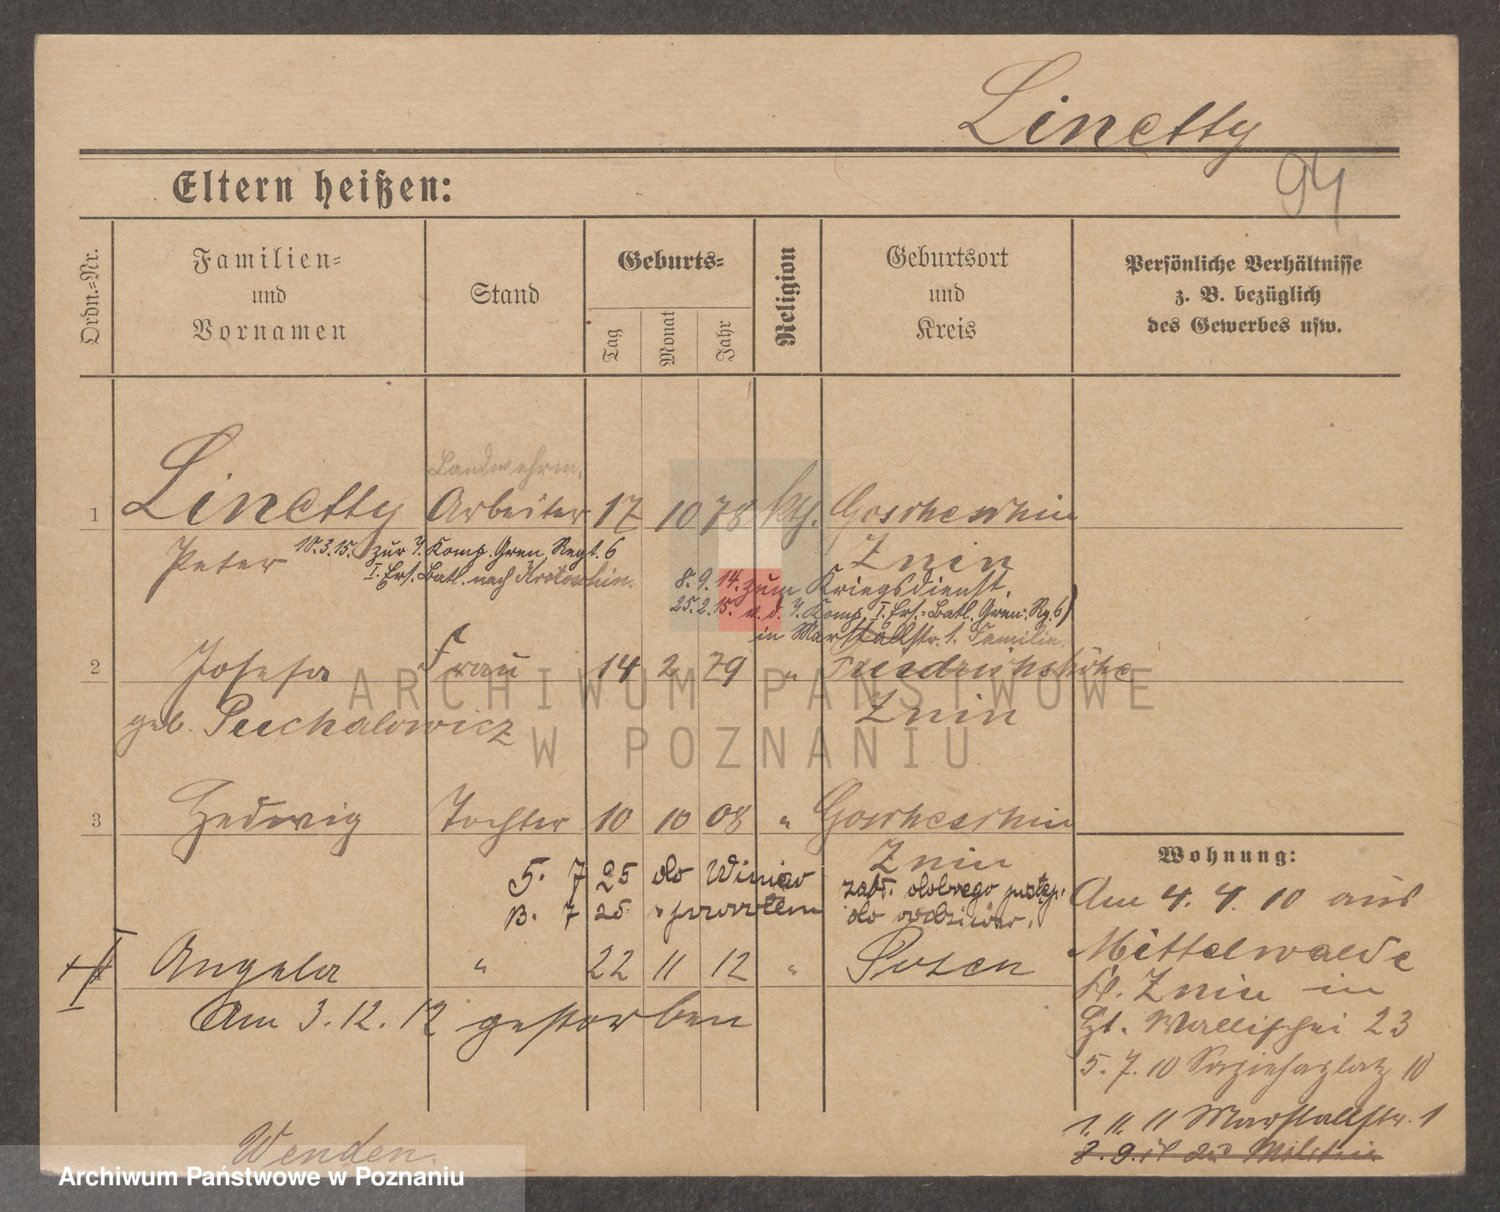 Linetty
94
Eltern heißen:
Ordn.-Nr.
Familien-
und
Vornamen
Stand
Geburts-
Tag
Monat
Jahr
Religion
Geburtsort
und
Kreis
Persönliche Verhältnisse
z. B. bezüglich
des Gewerbes usw.
Landwehrm.
1 Linetty Arbeiter 17 10 78 kth. Goscheschin
Peter
Znin
10.3.15. zur 7. Komp. Gren. Regt. 6
I. Ers. Batl. nach Krotoschin.
8.9.14. zum Kriegsdienst.
25.2.15. v. d. 7. Komp. I. Ers.-Batl. Gren. Rg. 6)
in Marstallstr. 1. Familie
2 Josefa Frau 14 2 79 " Friedrichshöhe
geb. Piechalowicz
Znin
3 Hedwig Tochter 10 10 08 " Goscheschin
Znin
5. 7 25 do Winiar
zakł. dobrego paster.
13. 7 25 z powrotem
do rodziców.
+ II
I
Angela " 22 11 12 " Posen
Am 3.12.12 gestorben
Wohnung:
Am 4.4.10 aus
Mittelwalde
Kr. Znin in
Gl. Wallischei 23
5.7.10 Sapiehaplatz 10
1.11.11 Marstallstr. 1
8.9.14 zu Militair
Wenden.
ARCHIWUM PAŃSTWOWE
W POZNANIU
Archiwum Państwowe w Poznaniu